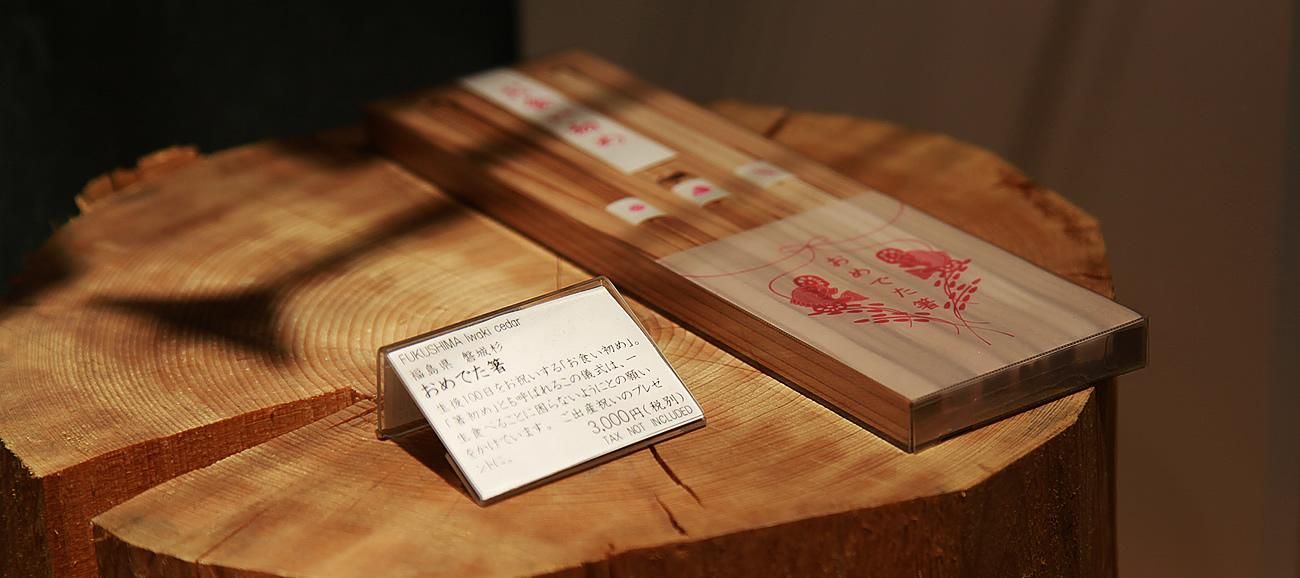 おめでた箸
FUKUSHIMA Iwaki cedar
福島県 磐城杉
おめでた箸
生後100日をお祝いする「お食い初め」。
「箸初め」とも呼ばれるこの儀式は、一
生食べることに困らないようにとの願い
をかけています。ご出産祝いのプレゼ
ントに。
3,000円(税別)
TAX NOT INCLUDED